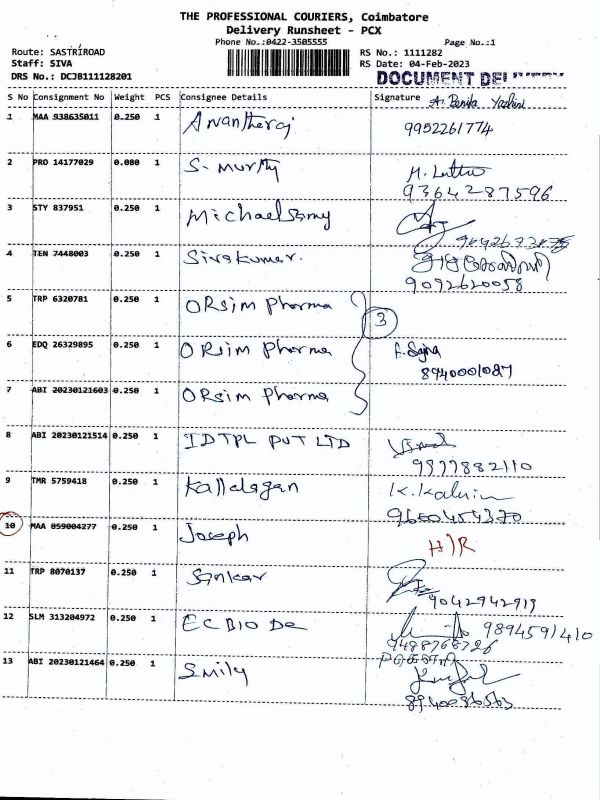 THE PROFESSIONAL COURIERS, Coimbatore
Delivery Runsheet - PCX
Phone No.:0422-3505555
Page No.:1
Route: SASTRIROAD
Staff: SIVA
DRS No.: DCJB111128201
RS No.: 1111282
RS Date: 04-Feb-2023
DOCUMENT
S No Consignment No Weight PCS Consignee Details Signature
1 MAA 938635011 0.250 1 Anantheraj 9952261774
2 PRO 14177029 0.080 1 S. Murthy 9364287596
3 STY 837951 0.250 1 Michaelsamy
4 TEN 7448003 0.250 1 Sivakumar. 9092620058
5 TRP 6320781 0.250 1 ORsim Pharma
3
6 EDQ 26329895 0.250 1 ORsim Pharma
7 ABI 20230121603 0.250 1 ORsim Pharma
8 ABI 20230121514 0.250 1 IDTPL PVT LTD 9877882110
9 TMR 5759418 0.250 1 Kallalagan K.Kalvin
10 MAA 859004277 0.250 1 Joseph H/R
11 TRP 8070137 0.250 1 Sankar 9042942919
12 SLM 313204972 0.250 1 ECBIO De 9894591410
9488768726
13 ABI 20230121464 0.250 1 Smily